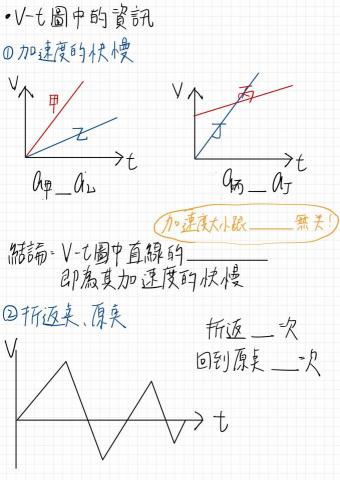 •V-t圖中的資訊
①加速度的快慢
V
甲
乙
t
V
丙
丁
t
a甲__a乙
a丙__a丁
加速度大小跟______無关!
結論:V-t圖中直線的________
即為其加速度的快慢
②折返点、原点
折返__次
回到原点__次
V
t